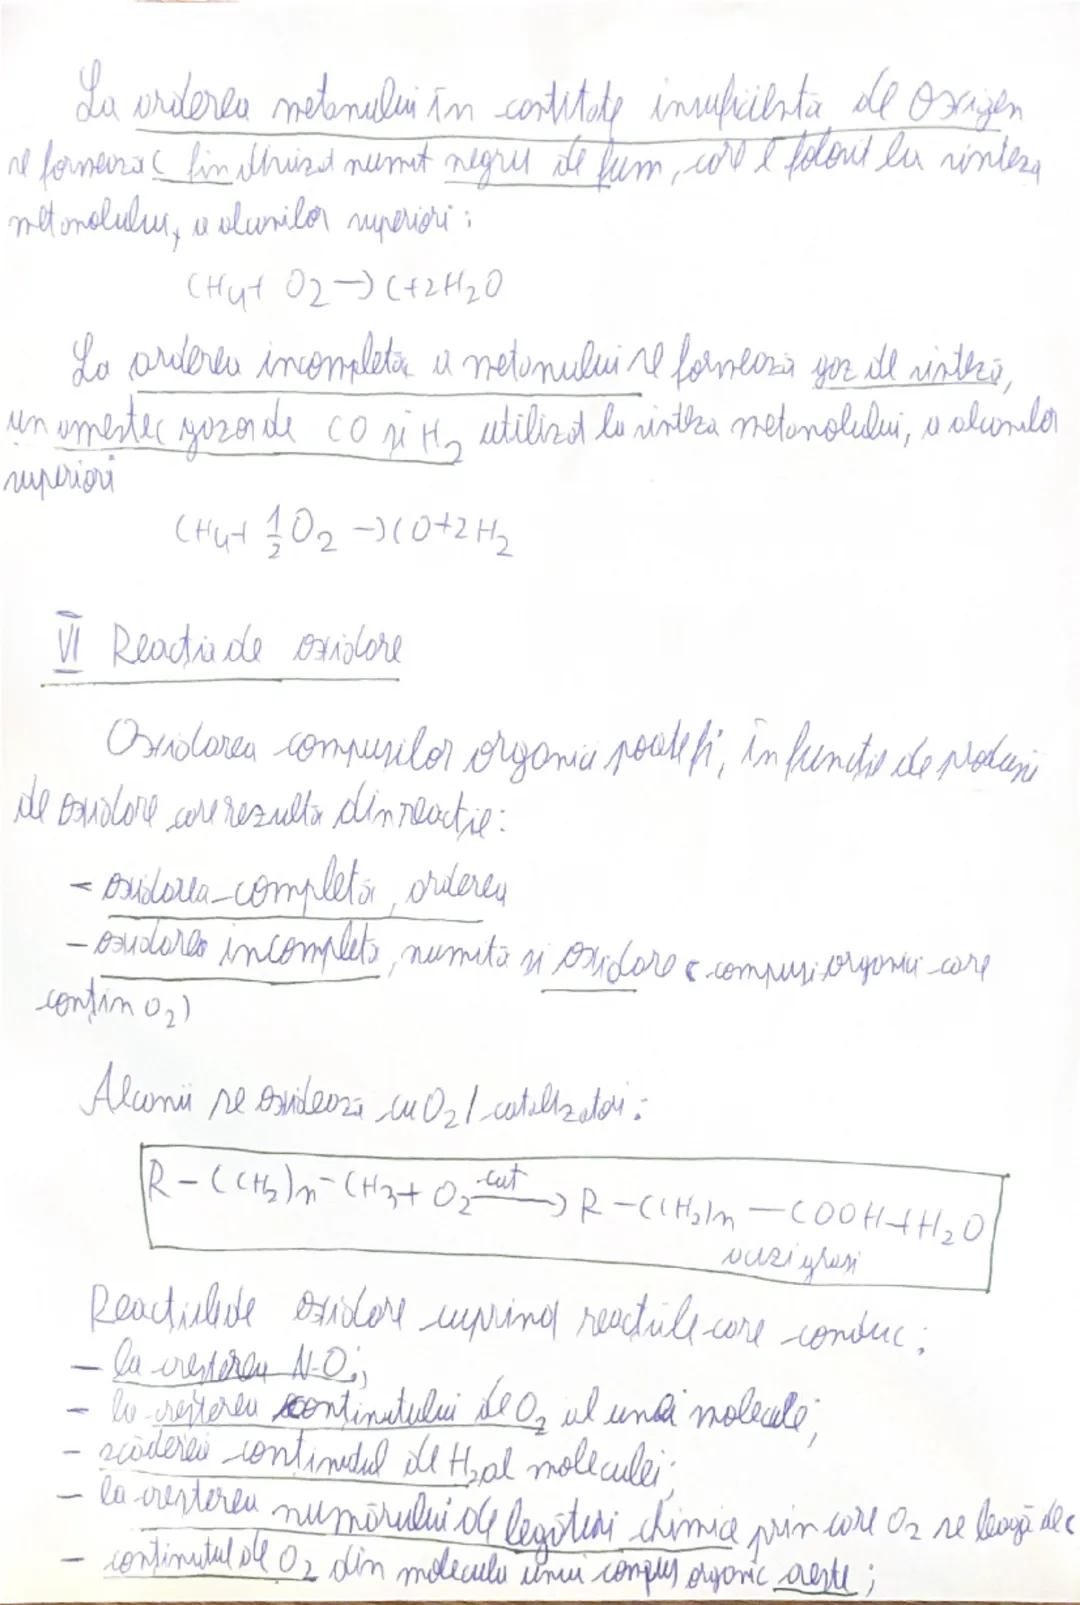 La arderea metanului în cantitate insuficientă de oxigen
se formează C fin divizat numit negru de fum, care e folosit la sinteza
metanolului, a alcanilor superiori;
CH4+ O2→C+2H2O
La arderea incompletă a metanului se formează gaz de sinteză,
un amestec gazos de CO și H2 utilizat la sinteza metanolului, a alcanilor
superiori
CH4+ 1/2 O2 →CO+2H2
VI Reacția de oxidare
Oxidarea compușilor organici poate fi, în funcție de produși
de oxidare care rezultă din reacție:
- oxidarea completă, arderea
- oxidarea incompletă, numită și oxidare (compuși organici care
conțin O2)
Alcanii se oxidează cu O2/ catalizatori:
R-(CH2)n-CH3+ O2 cat→ R-(CH2)n-COOH+H2O
acizi grași
Reacțiile de oxidare cuprind reacțiile care conduc:
- la creșterea N.O.;
- la creșterea conținutului de O2 al unei molecule;
- scăderea conținutul de H2 al moleculei;
- la creșterea numărului de legături chimice prin care O2 se leagă de C
- conținutul de O2 din molecula unui compus organic crește;